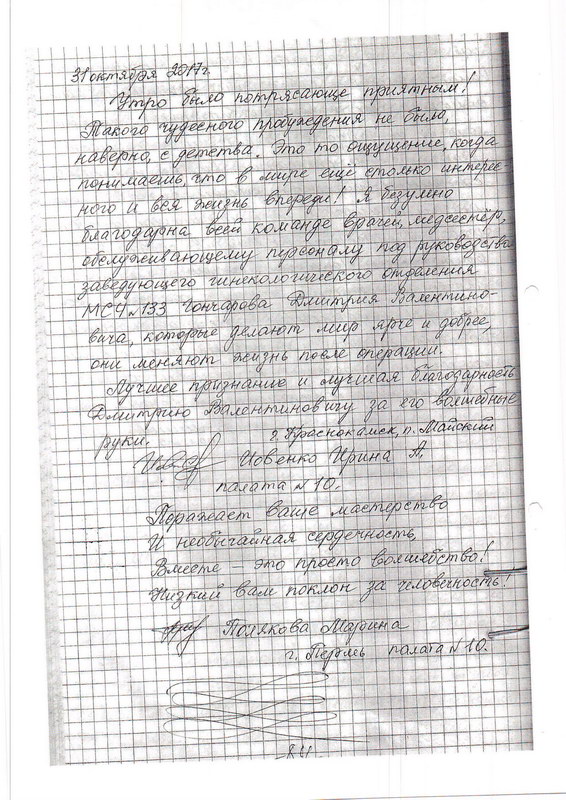 31 октября 2017г.
Утро было потрясающе приятным!
Такого чудесного пробуждения не было,
наверно, с детства! Это то ощущение, когда
понимаешь, что в мире ещё столько интерес-
ного и вся жизнь впереди! Я безумно
благодарна всей команде врачей, медсестёр,
обслуживающему персоналу под руководство
заведующего гинекологического отделения
МСЧ №133 Гончарова Дмитрия Валентино-
вича, которые делают мир ярче и добрее,
они меняют жизнь после операции.
Лучшее признание и лучшая благодарность
Дмитрию Валентиновичу за его волшебные
руки.
г. Краснокамск, п. Майский
Иовенко Ирина А.
палата №10.
Поражает ваше мастерство
И необычайная сердечность,
Вместе – это просто волшебство!
Низкий вам поклон за человечность!
Полякова Марина
г. Пермь палата №10.